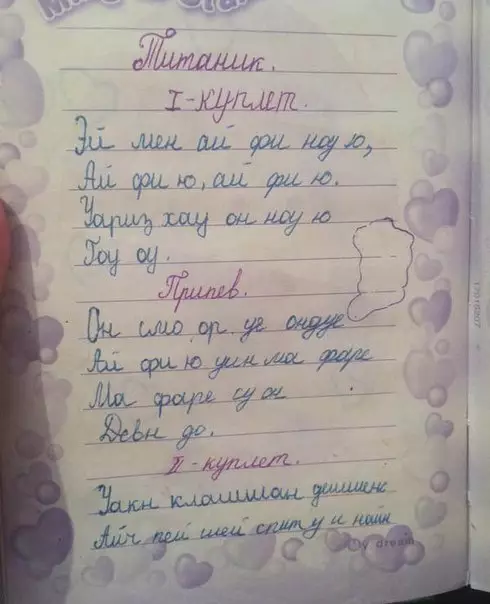 Титаник.
I-куплет.
Эй мен ай фи ноу ю,
Ай фи ю, ай фи ю.
Уариз хау он ноу ю
Гоу оу.
Припев.
Он смо ор уе ондуе
Ай фи ю уин ма фаре
Ма фаре су он
Девн до.
II-куплет.
Уакн клашшан дешшенс
Айч пей шей спит у и найн
y dream
17015807